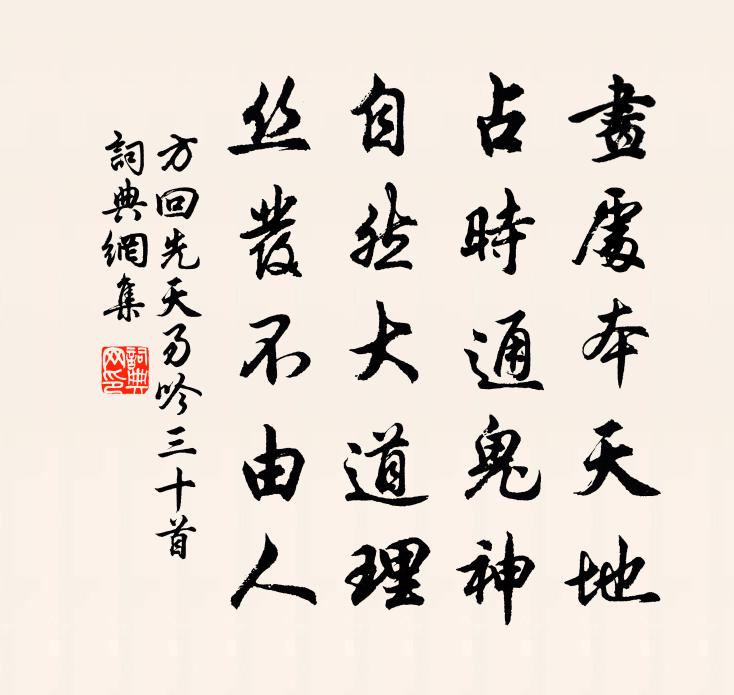 畫處本天地
占時通鬼神
自然大道理
丝發不由人
方回先天易吟三十首
詞典網集
詞典網印